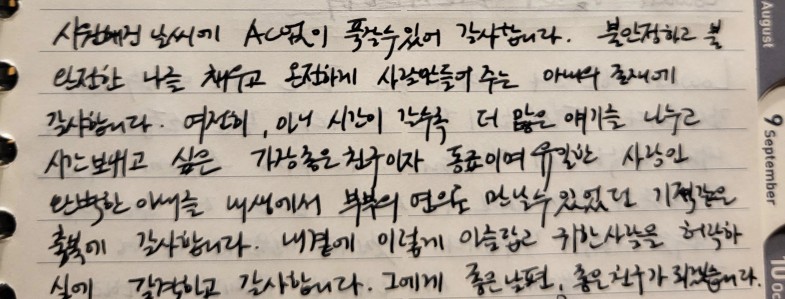 시원해진 날씨에 AC없이 푹잘수있어 감사합니다. 불안정하고 불
완전한 나를 채우고 온전하게 사람만들어 주는 아내의 존재에
감사합니다. 여전히, 아니 시간이 갈수록 더 많은 얘기를 나누고
시간보내고 싶은 가장좋은친구이자 동료이며 유일한 사랑인
완벽한 아내를 내생에서 부부의 연으로 만날수 있었던 기적같은
축복에 감사합니다. 내곁에 이렇게 아름답고 귀한사람을 허락하
심에 감격하고 감사합니다. 그에게 좋은남편, 좋은친구가 되겠습니다.
August
9 September
10 Oc